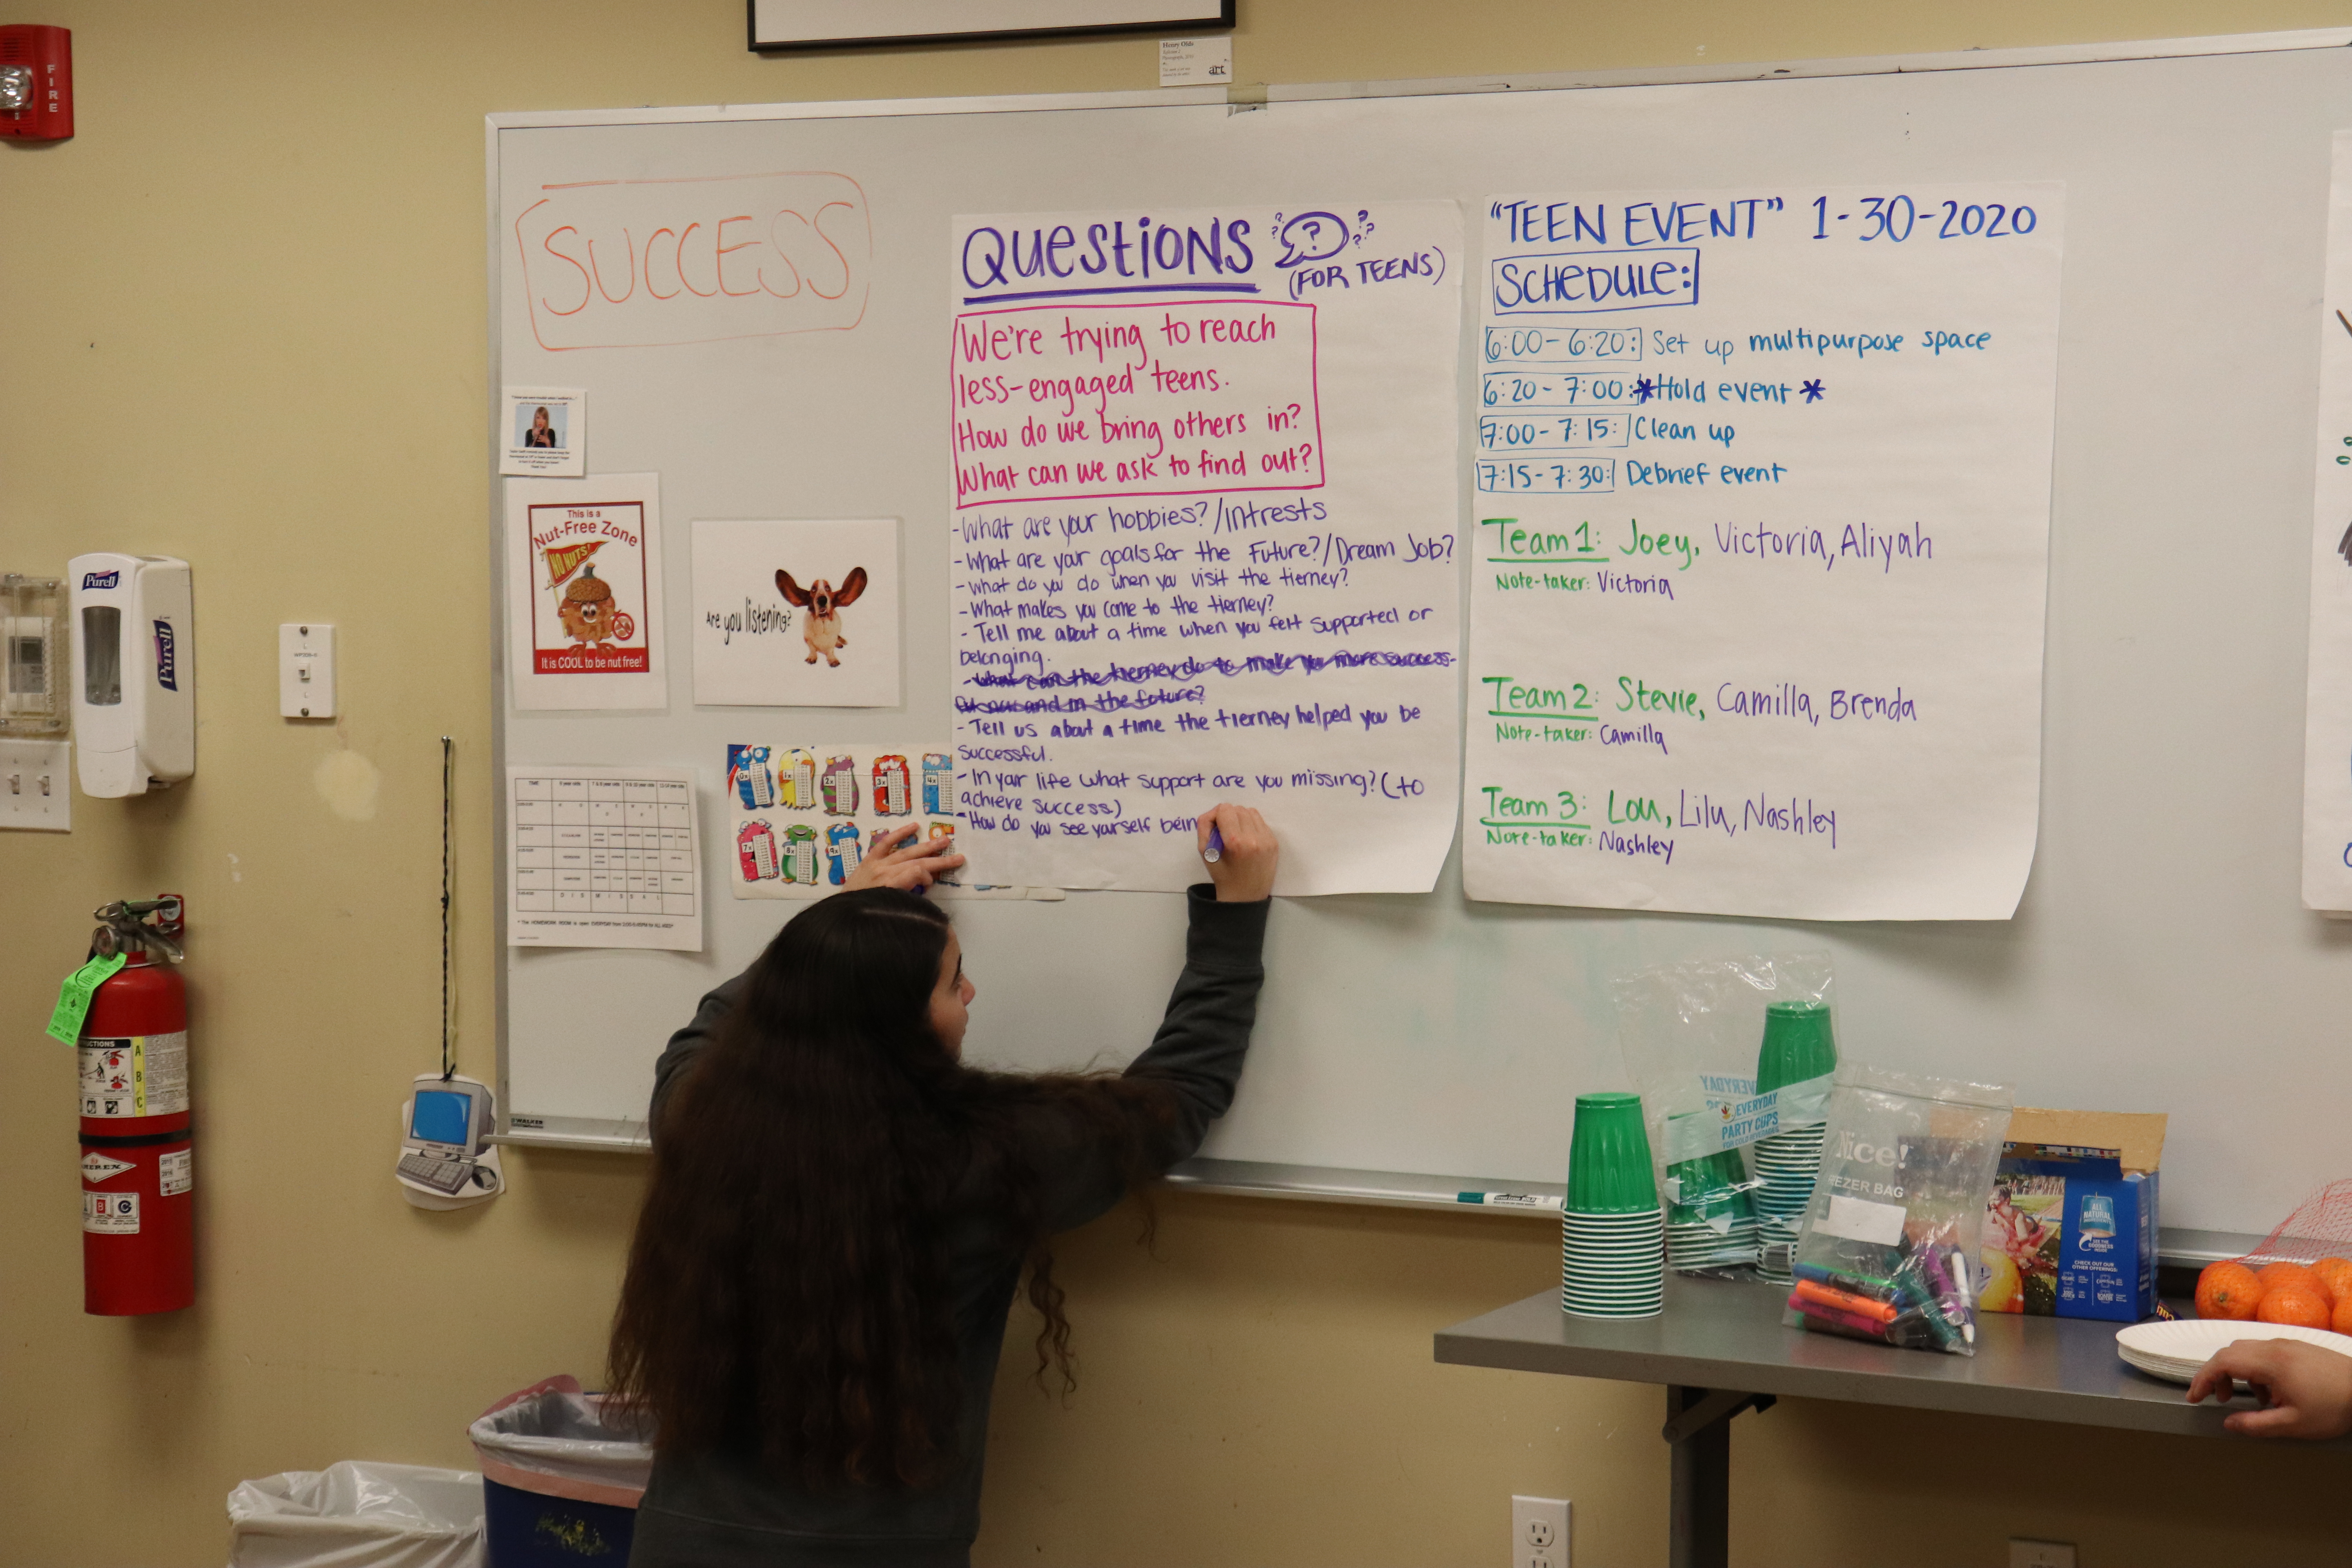 FIRE
Henry Olds
art
SUCCESS
QUESTIONS
?
(FOR TEENS)
We're trying to reach
less-engaged teens.
How do we bring others in?
What can we ask to find out?
-What are your hobbies?/Intrests
-What are your goals for the Future?/Dream Job?
-what do you do when you visit the tierney?
-What makes you come to the tierney?
- Tell me about a time when you felt supported or
belonging.
-What can the tierney do to make you more success-
and in the future?
-Tell us about a time the tierney helped you be
successful.
-In your life what support are you missing? (to
achieve success)
-How do you see yourself bein
"TEEN EVENT" 1-30-2020
SCHEDULE:
6:00-6:20: Set up multipurpose space
6:20-7:00: *Hold event*
7:00-7:15: Clean up
7:15-7:30: Debrief event
Team 1: Joey, Victoria, Aliyah
Note-taker: Victoria
Team 2: Stevie, Camilla, Brenda
Note-taker: Camilla
Team 3: Lou, Lilu, Nashley
Note-taker: Nashley
This is a
Nut-Free Zone
NO NUTS!
It is COOL to be nut free!
Are you listening?
TIME
0x
1x
2x
3x
4x
7x
8x
9x
Purell
Purell
A
B
C
EVERYDAY
EVERYDAY
PARTY CUPS
Nice!
EZER BAG
ALL NATURAL
CHECK OUT OUR
OTHER OFFERINGS: